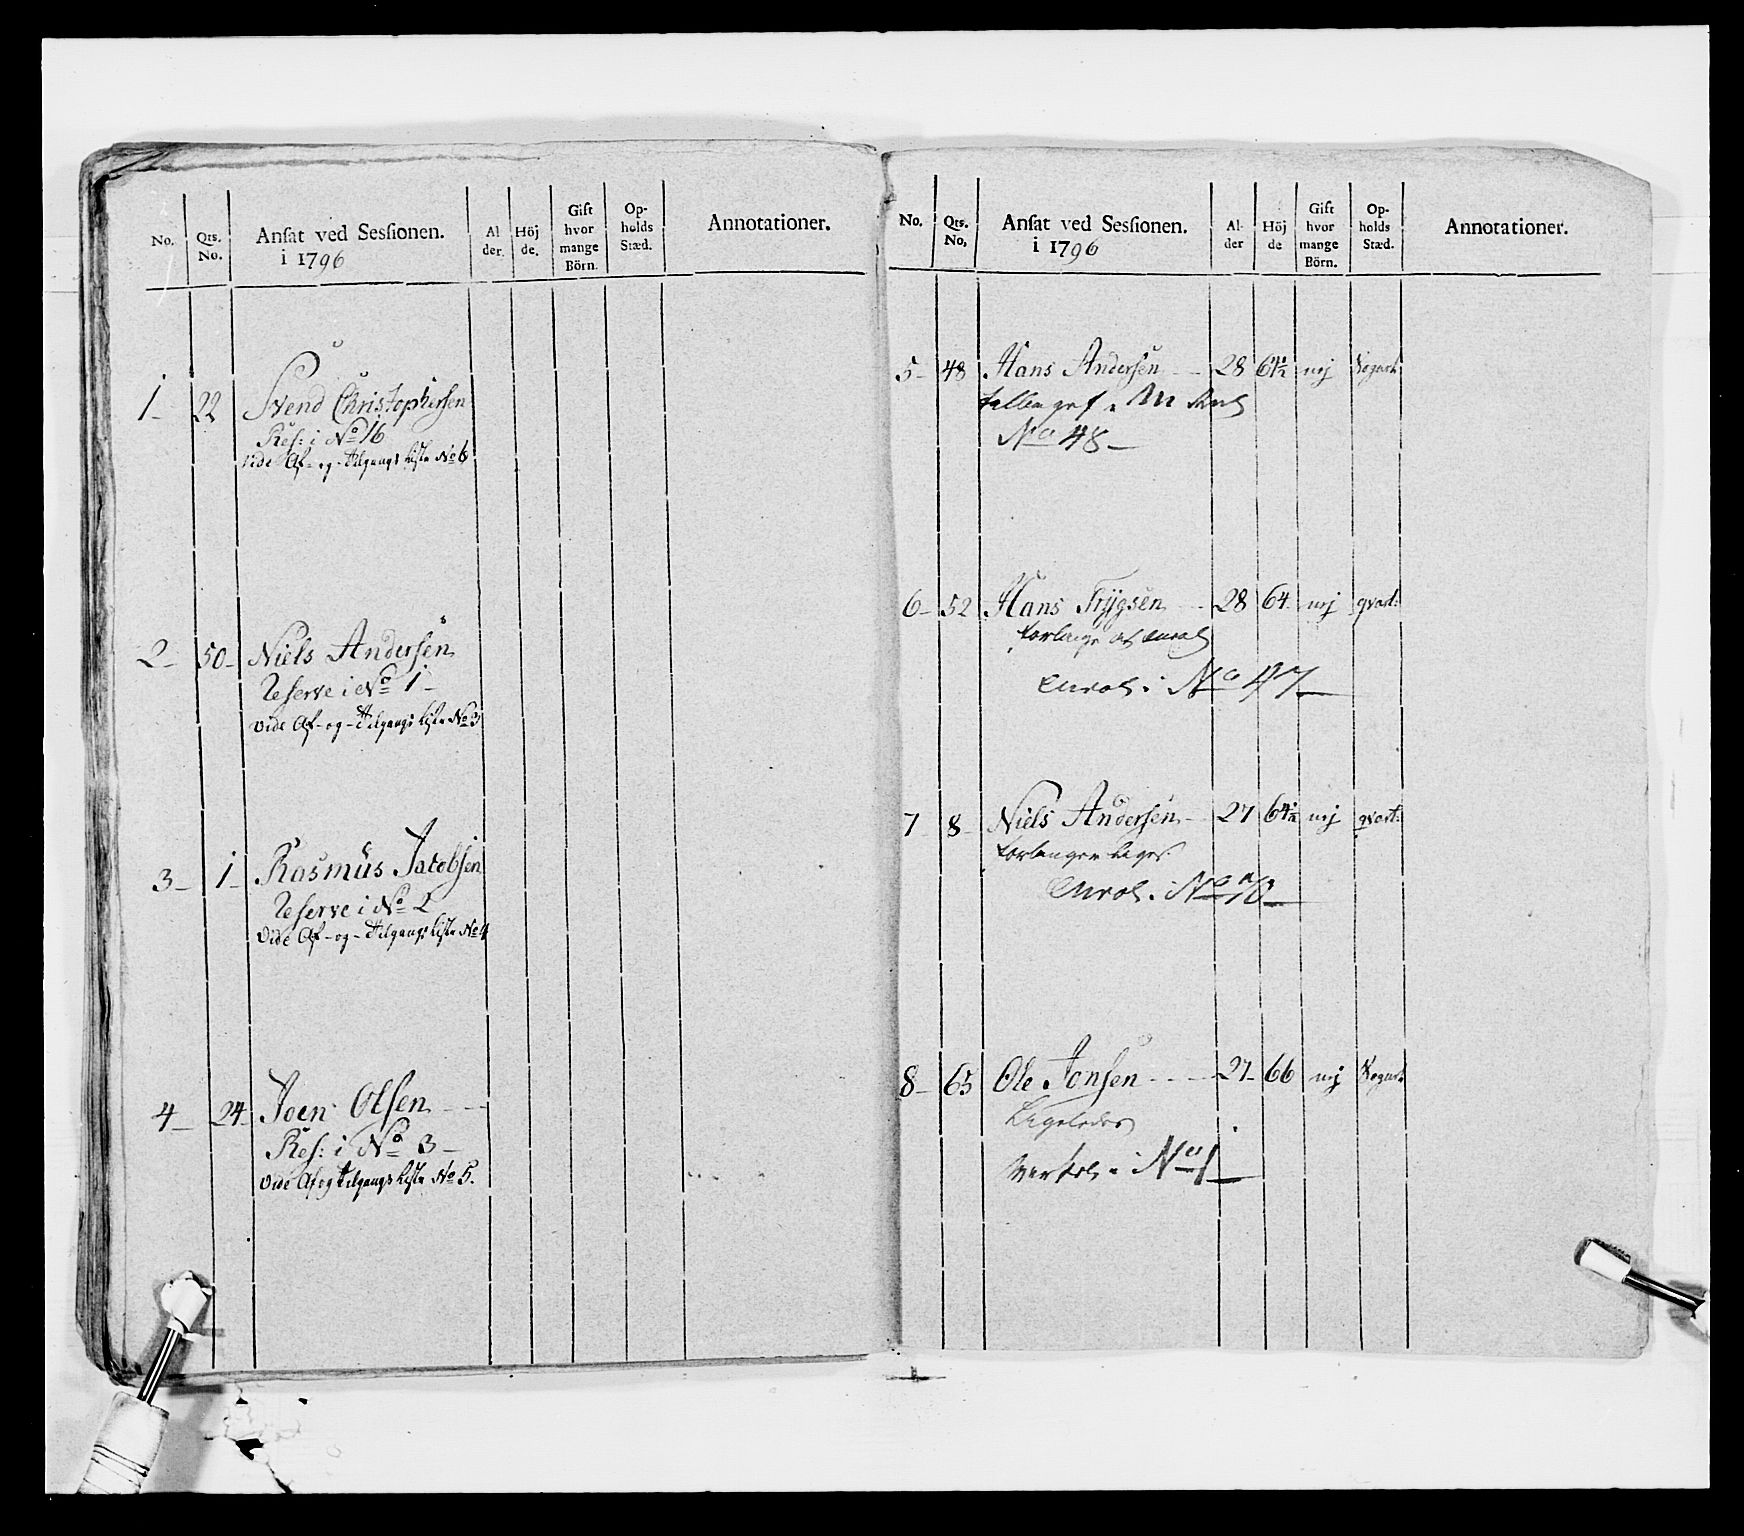 No. Qrs. No. Ansat ved Sessionen. i 1796 Alder. Höjde. Gift hvor mange Börn. Opholds Stæd. Annotationer.
1- 22 Svend Christophersen
Res: i No 16
vide Af- og- Tilgangs Liste No 6
2- 50- Niels Andersen
Reserve i No 1-
vide Af- og- Tilgangs Liste No 3
3- 1- Rasmus Jacobsen
Reserve i No 2
Vide Af- og- Tilgangs Liste No 4
4- 24- Joen Olsen
Res: i No 3-
vide Af og tilgangs Liste No 5.
No. Qrs. No. Ansat ved Sessionen. i 1796 Alder Höjde Gift hvor mange Börn. Opholds Stæd. Annotationer.
5- 48 Hans Andersen 28 64½ nej
No 48-
6- 52 Hans Trygsen 28 64 nej qvart:
Enrol. i No 47
7- 8- Niels Andersen- 27 64½ nej qvart:
Enrol. i No
8- 65 Ole Jonsen 27- 66 nej
Ligeledes
i No 1